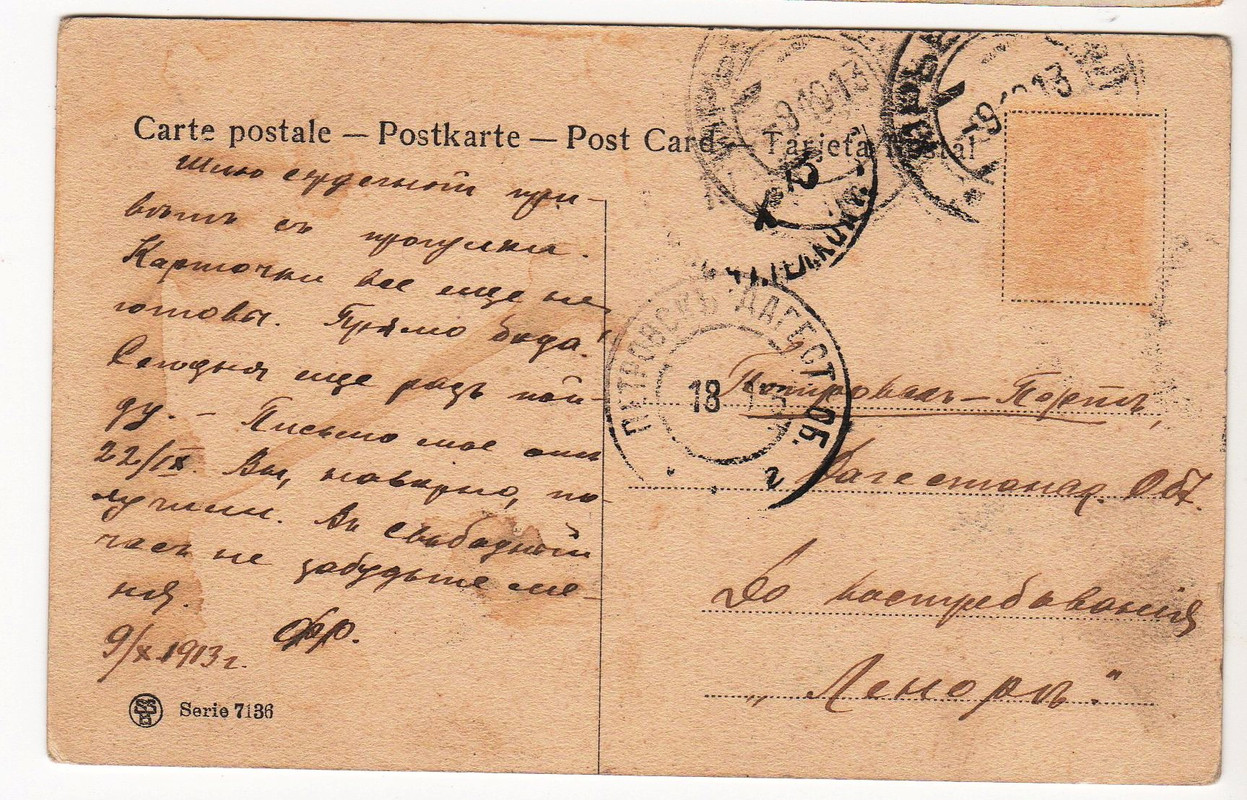 Carte postale — Postkarte — Post Card — Tarjeta Postal
Шлю сердечный при-
вѣтъ съ прогулки.
Карточки все еще не
готовы. Прямо бѣда!
Сегодня еще разъ пой-
ду. – Письмо мое отъ
22/IX Вы, навѣрно, по-
лучили. Въ свободный
часъ не забудьте ме-
ня.
9/X 1913 г. Фр.
Serie 7136
-9.10.13
-9.10.13
ПЕТРОВСКЪ ДАГЕСТ. ОБ.
18
Петровскъ-Портъ,
Дагестанск. Обл.
До востребованія
„Леноръ"